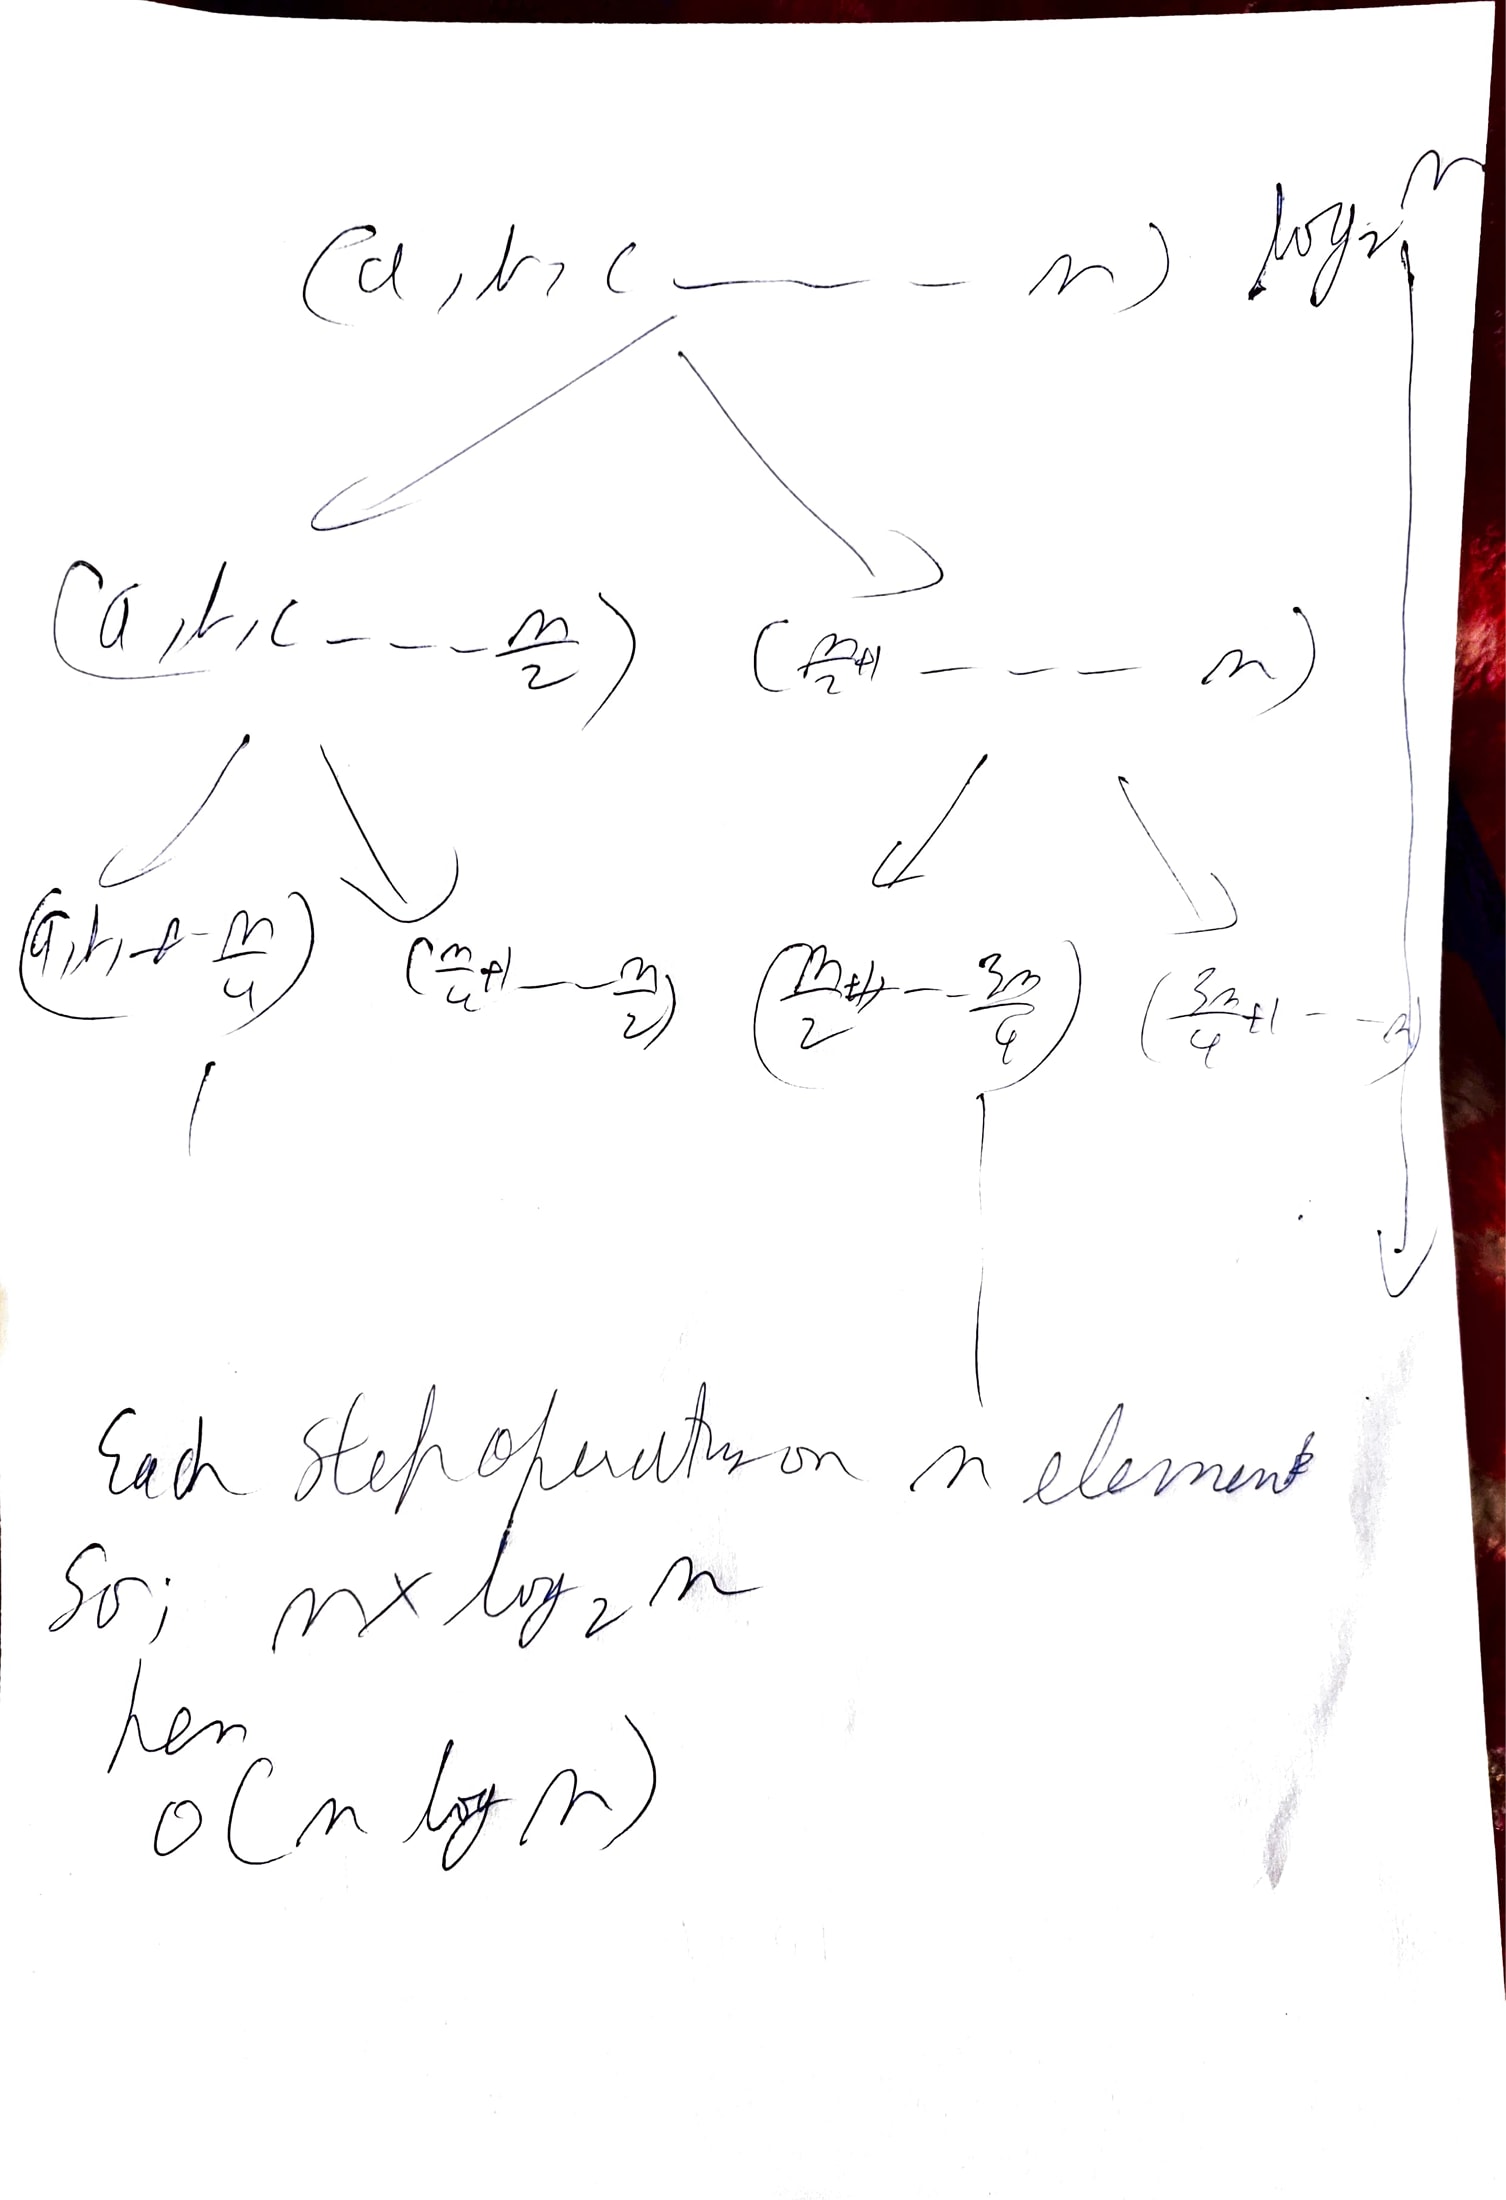 (a, b, c ——— - n) log₂ n
(a, b, c - - - - n/2) (n/2+1 - - - n)
(a, b, - - - n/4) (n/4+1 - - - n/2) (n/2+1 - - - 3n/4) (3n/4+1 - - n)
Each step operation on n element
So; n × log₂ n
hen
O(n log n)